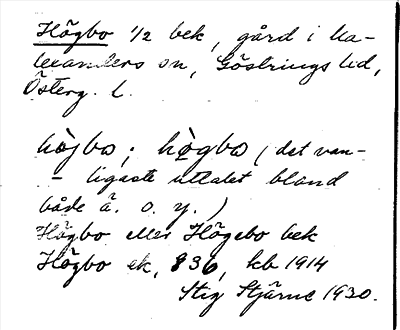 Högbo 1/2 bek, gård i Ka-
lexanders sn, Göstrings hd,
Österg. l.
hȯjbω; hȯgbω (det van-
- ligaste uttalet bland
både ä. o. y.)
Högbo eller Högebo bek
Högbo ek, 836, kb 1914
Stig Stjärne 1930.